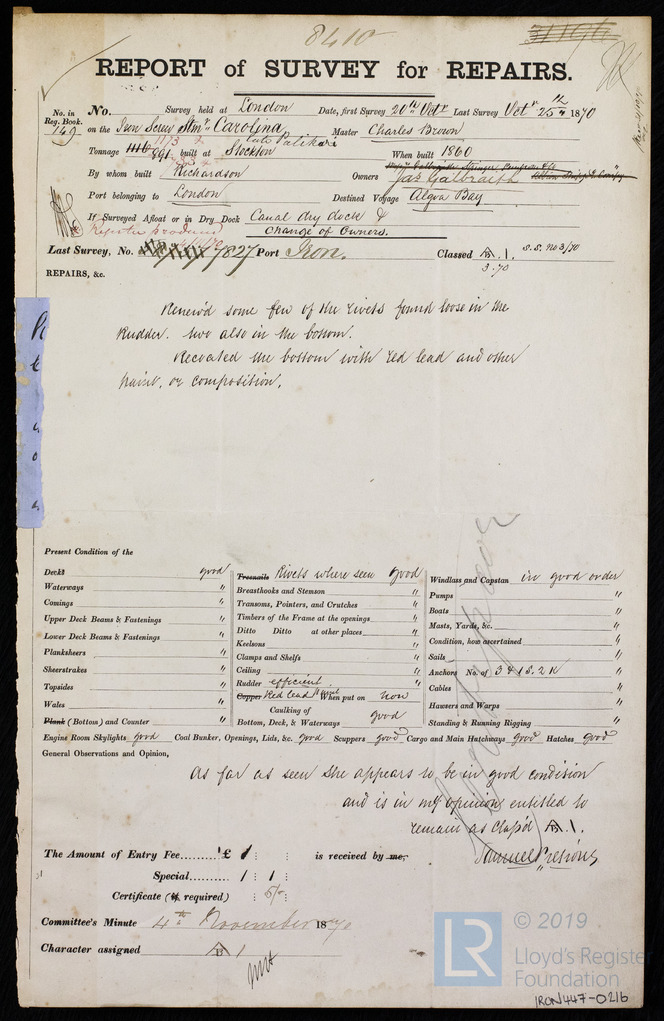 8410
31196
REPORT of SURVEY for REPAIRS.
No. in Reg. Book. 149
No. Survey held at London Date, first Survey 20th Octr Last Survey Octr 25th 1870
on the Iron Screw Stmr Carolina Master Charles Brown
late Palikari
Tonnage 1173 891 built at Stockton When built 1860
By whom built Richardson Owners Jas Galbraith
Port belonging to London Destined Voyage Algoa Bay
If Surveyed Afloat or in Dry Dock Canal dry dock &
Change of Owners.
Register produced
Last Survey, No. 7827 Port Iron. Classed A 1. S.S. No 3/70
3.70
REPAIRS, &c.
Renew'd some few of the rivets found loose in the
Rudder. two also in the bottom.
Recoated the bottom with red lead and other
paint, or composition.
Present Condition of the
Decks good
Waterways "
Comings "
Upper Deck Beams & Fastenings "
Lower Deck Beams & Fastenings "
Planksheers "
Sheerstrakes "
Topsides "
Wales "
Plank (Bottoms) and Counter "
Treenails Rivets where seen good
Breasthooks and Stemson "
Transoms, Pointers, and Crutches "
Timbers of the Frame at the openings "
Ditto Ditto at other places "
Keelsons "
Clamps and Shelfs "
Ceiling "
Rudder efficient. "
Copper Red lead paint When put on now
Caulking of
Bottom, Deck, & Waterways good
Windlass and Capstan in good order
Pumps "
Boats "
Masts, Yards, &c. "
Condition, how ascertained "
Sails "
Anchors No. of 3 & 1 S. 2 K "
Cables "
Hawsers and Warps "
Standing & Running Rigging "
Engine Room Skylights good Coal Bunker, Openings, Lids, &c. good Scuppers good Cargo and Main Hatchways good Hatches good
General Observations and Opinion,
As far as seen she appears to be in good condition
and is in my opinion entitled to
remain as Class'd A 1.
Samuel Pretious
The Amount of Entry Fee......... £ is received by me,
Special............ 1 : 1 :
Certificate (if required) : 5/- :
Committee's Minute 4th November 1870
Character assigned A 1
© 2019
LR
Lloyd's Register
Foundation
IRON447-0216